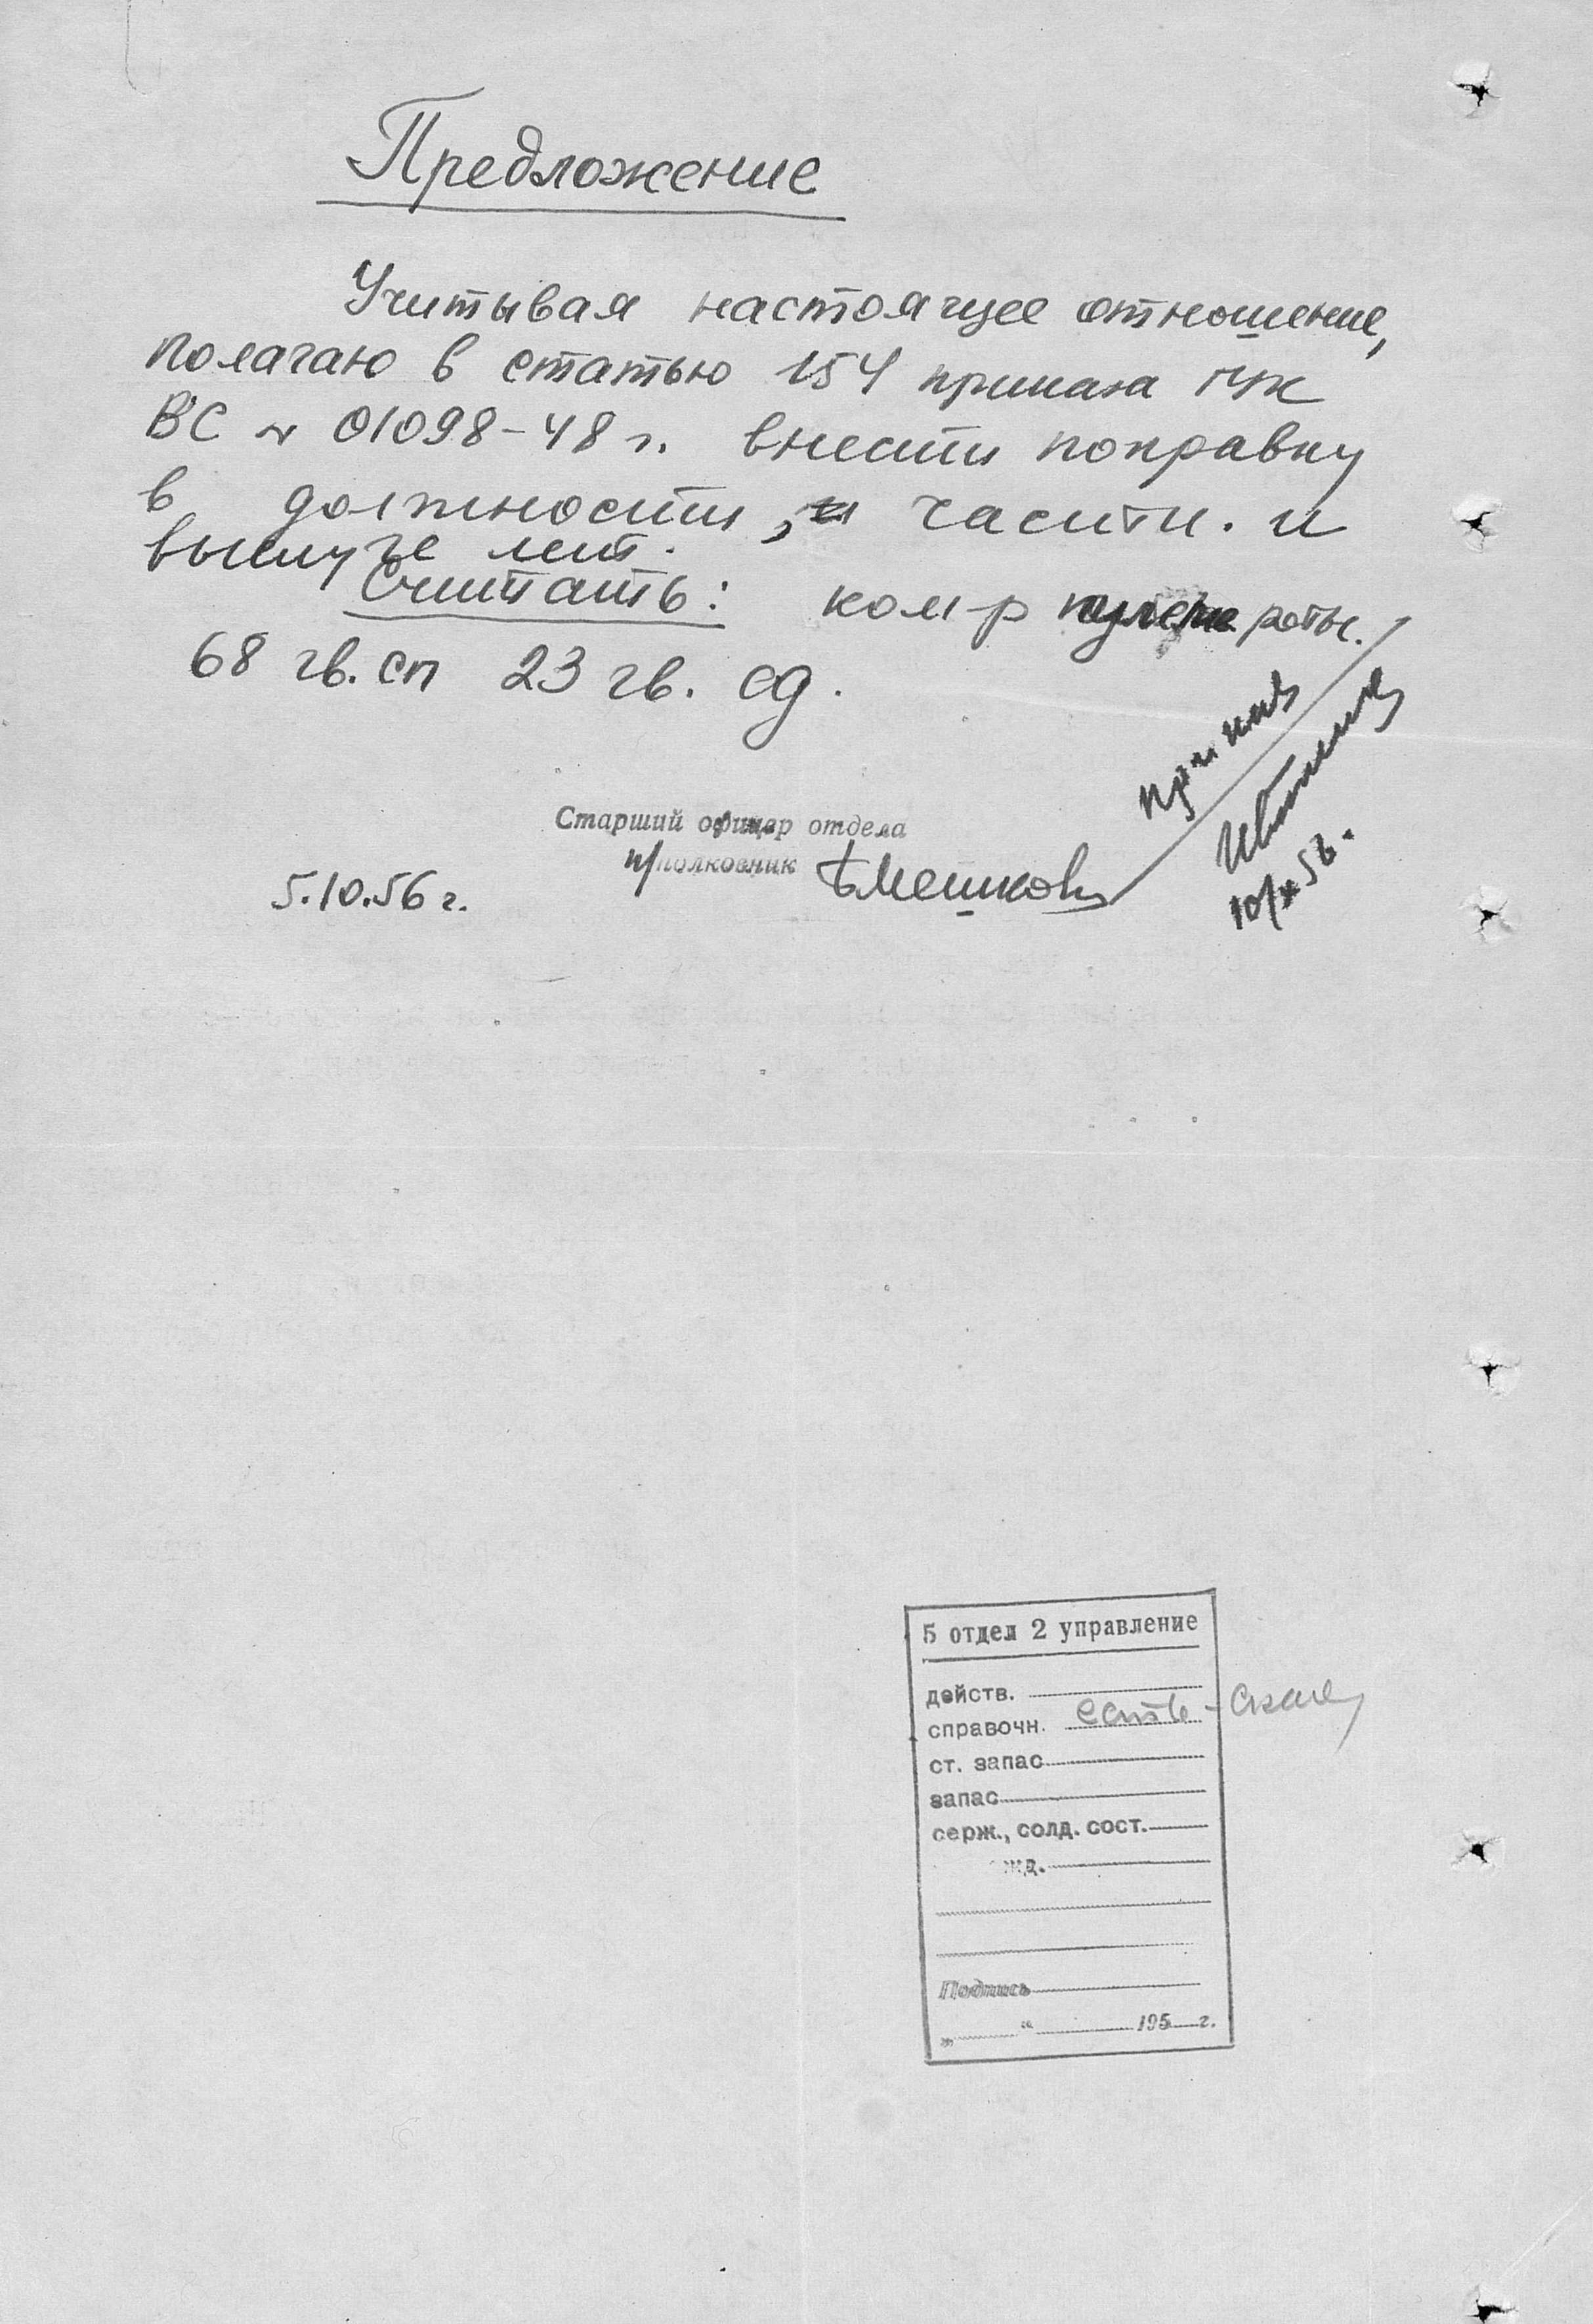 Предложение
Учитывая настоящее отношение,
полагаю в статью 154 приказа ГУК
ВС № 01098-48 г. внести поправку
в должности, части. и
выслуге лет.
Считать: ком-р пулем. роты.
68 гв. сп 23 гв. сд.
приказ
10/X 56.
Старший офицер отдела
п/полковник Мешков
5.10.56 г.
5 отдел 2 управление
действ.
справочн. есть -
ст. запас
запас
серж., солд. сост.
жд.
Подпись
„ “ 195 г.